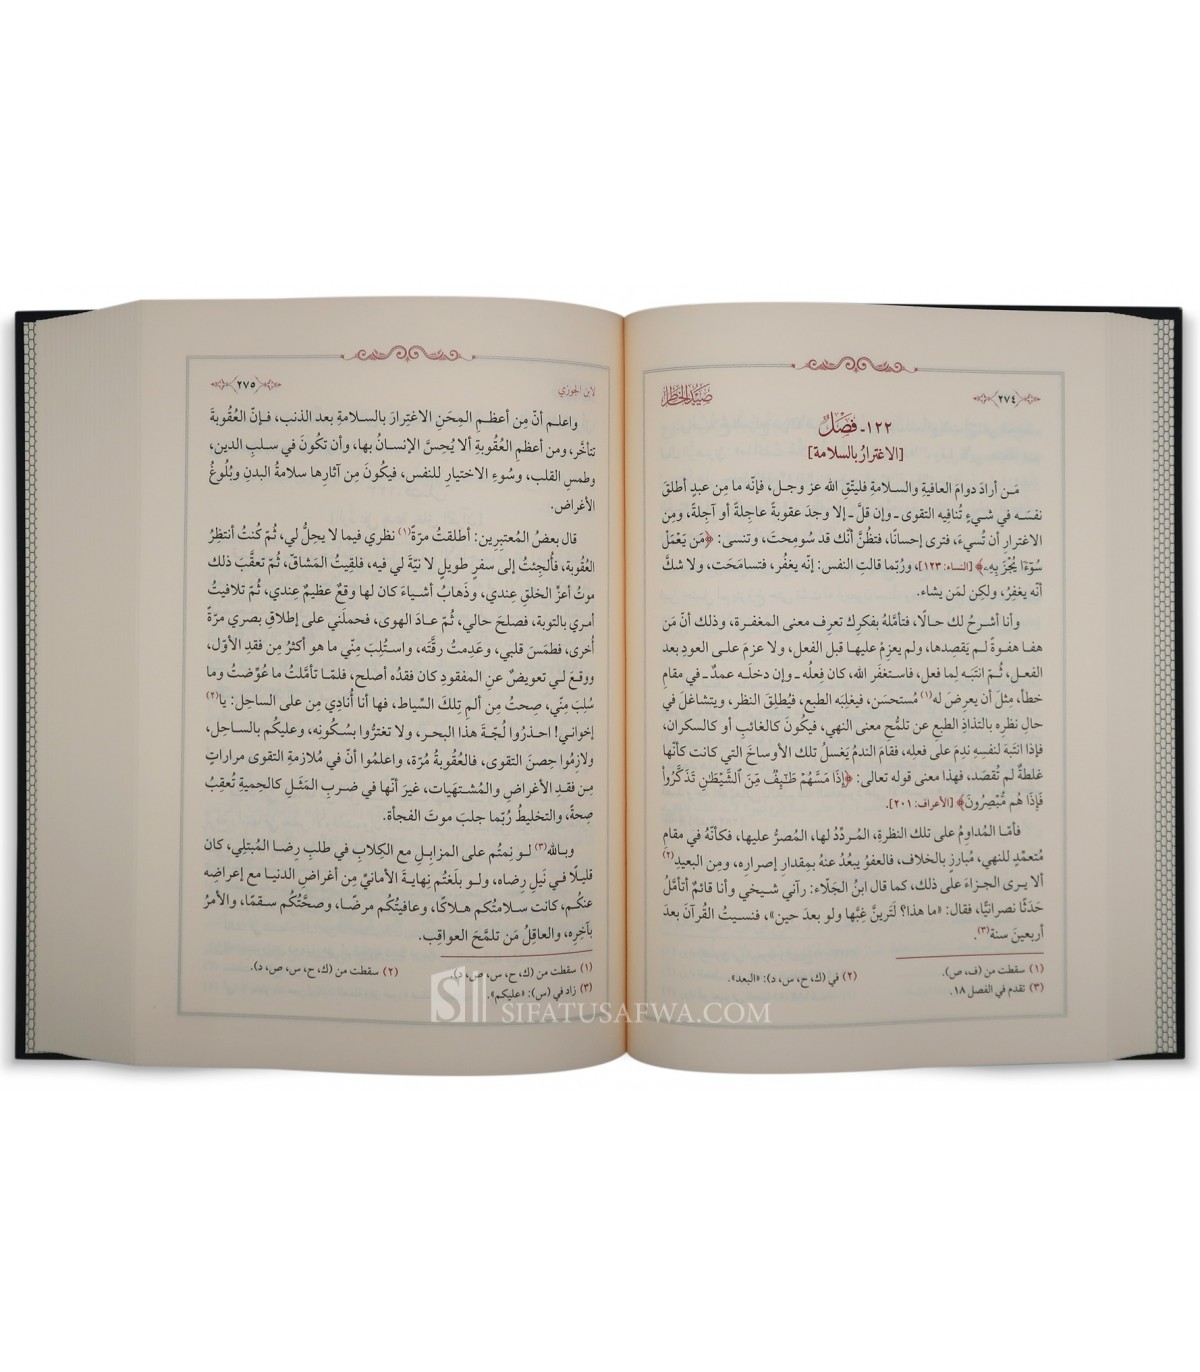 ٢٧٤
صيد الخاطر
١٢٢ـ فَصْلٌ
[الاغترارُ بالسلامة]
مَـن أرادَ دوامَ العافيةِ والسلامةِ فليتَّقِ الله عز وجل، فإنّه ما مِن عبدٍ أطلقَ
نفسَـه في شـيءٍ تُنافِيه التقوى ـ وإن قلَّ ـ إلا وجدَ عقوبةً عاجِلةً أو آجِلةً، ومِن
الاغترارِ أن تُسيءَ، فترى إحسانًا، فتظُنَّ أنّك قد سُومِحتَ، وتنسى: ﴿مَن يَعْمَلْ
سُوٓءًا يُجْزَ بِهِۦ﴾ [النساء: ١٢٣]، ورُبّما قالتِ النفس: إنه يغفُر، فتسامَحَت، ولا شكَّ
أنّه يغفِرُ، ولكِن لمَن يشاء.
وأنا أشـرحُ لك حـالًا، فتأمَّلهُ بفكرِك تعرِف معنى المغفـرة، وذلك أنّ مَن
هفـا هفـوةً لـم يَقصِدها، ولم يعزِم عليهـا قبل الفعل، ولا عزمَ علـى العودِ بعد
الفعل، ثُـمّ انتَبَـه لِما فعل، فاسـتغفَر الله، كان فِعلُه ـ وإن دخلَـه عمدٌ ـ في مقامِ
خطأ، مِثلَ أن يعرِضَ له(١) مُستحسَن، فيغلِبَه الطبع، فيُطلِقَ النظر، ويتشاغلَ في
حالِ نظرِه بالتذاذِ الطبعِ عن تلمُّحِ معنى النهي، فيكُونَ كالغائبِ أو كالسكران،
فإذا انتَبَهَ لنفسِهِ ندِمَ على فعلِه، فقامَ الندمُ يَغسلُ تلك الأوساخَ التي كانت كأنّها
غلطةٌ لم تُقصَد، فهذا معنى قوله تعالى: ﴿إِذَا مَسَّهُمْ طَـٰٓئِفٌ مِّنَ ٱلشَّيْطَـٰنِ تَذَكَّرُوا۟
فَإِذَا هُم مُّبْصِرُونَ﴾ [الأعراف: ٢٠١].
فأمّا المُداوِمُ على تلك النظرةِ، المُردِّدُ لها، المُصرُّ عليها، فكأنّهُ في مقامِ
مُتعمِّدٍ للنهي، مُبارِزٍ بالخلاف، فالعفوُ يبعُدُ عنهُ بمِقدارِ إصرارِه، ومِن البعيدِ(٢)
ألا يـرى الجـزاءَ على ذلك، كما قال ابنُ الجَلّاء: رآني شـيخي وأنا قائمٌ أتأمَّلُ
حَدَثًا نصرانيًّا، فقال: «ما هذا؟ لَتَرينَّ غِبَّها ولو بعدَ حين»، فنسيتُ القُرآنَ بعدَ
أربعينَ سنة(٣).
(١) سقطت من (ف، ص).
(٢) في (ك، ح، س، د): «البعد».
(٣) تقدم في الفصل ١٨.
لابن الجوزي
٢٧٥
واعلـم أنّ مِن أعظـمِ المِحَنِ الاغتِرارَ بالسـلامةِ بعد الذنب، فـإنّ العُقُوبةَ
تتأخَّر، ومن أعظمِ العُقُوبةِ ألا يُحِسَّ الإنسـانُ بها، وأن تكُونَ في سـلبِ الدين،
وطمسِ القلب، وسُوءِ الاختيارِ للنفس، فيكُونَ مِن آثارِها سلامةُ البدنِ وبُلُوغُ
الأغراض.
قال بعضُ المُعتبِرِين: أطلقتُ مرّةً(١) نظري فيما لا يحِلُّ لي، ثُمّ كُنتُ أنتظِرُ
العُقُوبة، فأُلجِئتُ إلى سفرٍ طويلٍ لا نيّةَ لي فيه، فلقِيتُ المَشاقّ، ثُمّ تعقَّبَ ذلك
موتُ أعزِّ الخلقِ عِندي، وذَهابُ أشياءَ كان لها وقعٌ عظيمٌ عِندي، ثُمّ تلافيتُ
أمـري بالتوبة، فصلحَ حالي، ثُمّ عـادَ الهوى، فحملَني على إطلاقِ بصري مرّةً
أُخرى، فطمَسَ قلبي، وعَدِمتُ رقَّتَه، واستُلِبَ مِنّي ما هو أكثرُ مِن فقدِ الأوّل،
ووقعَ لـي تعويضٌ عنِ المفقودِ كان فقدُه أصلح، فلمّا تأمَّلتُ ما عُوِّضتُ وما
سُلِبَ مِنّي، صِحتُ مِن ألمِ تِلكَ السِّياط، فها أنا أُنادِي مِن على الساحِل: يا(٢)
إخواني! احـذرُوا لُجّةَ هذا البحـر، ولا تغترُّوا بسُـكُونه، وعليكُم بالساحِل،
ولازِمُوا حِصنَ التقوى، فالعُقُوبةُ مُرّة، واعلمُوا أنّ في مُلازمةِ التقوى مراراتٍ
مِـن فقدِ الأغراضِ والمُشـتهَيات، غيرَ أنّها في ضربِ المَثَـلِ كالحِميةِ تُعقِبُ
صِحةً، والتخليطُ رُبّما جلبَ موتَ الفجأة.
وبـالله(٣) لـو نِمتُم على المزابِلِ مع الكِلابِ في طلبِ رِضا المُبتلِي، كان
قليـلًا فـي نَيلِ رِضاه، ولـو بلَغتُم نِهايةَ الأمانيِّ مِن أغراضِ الدنيا مع إعراضِه
عنكُم، كانت سـلامتُكم هـلاكًا، وعافيتُكُم مرضًـا، وصحَّتُكُم سـقمًا، والأمرُ
بآخِرِه، والعاقِلُ مَن تلمَّحَ العواقِب.
(١) سقطت من (ك، ح، س، ص، د).
(٢) سقطت من (ك، ح، س، ص، د).
(٣) زاد في (س): «عليكم».
SIFATUSAFWA.COM